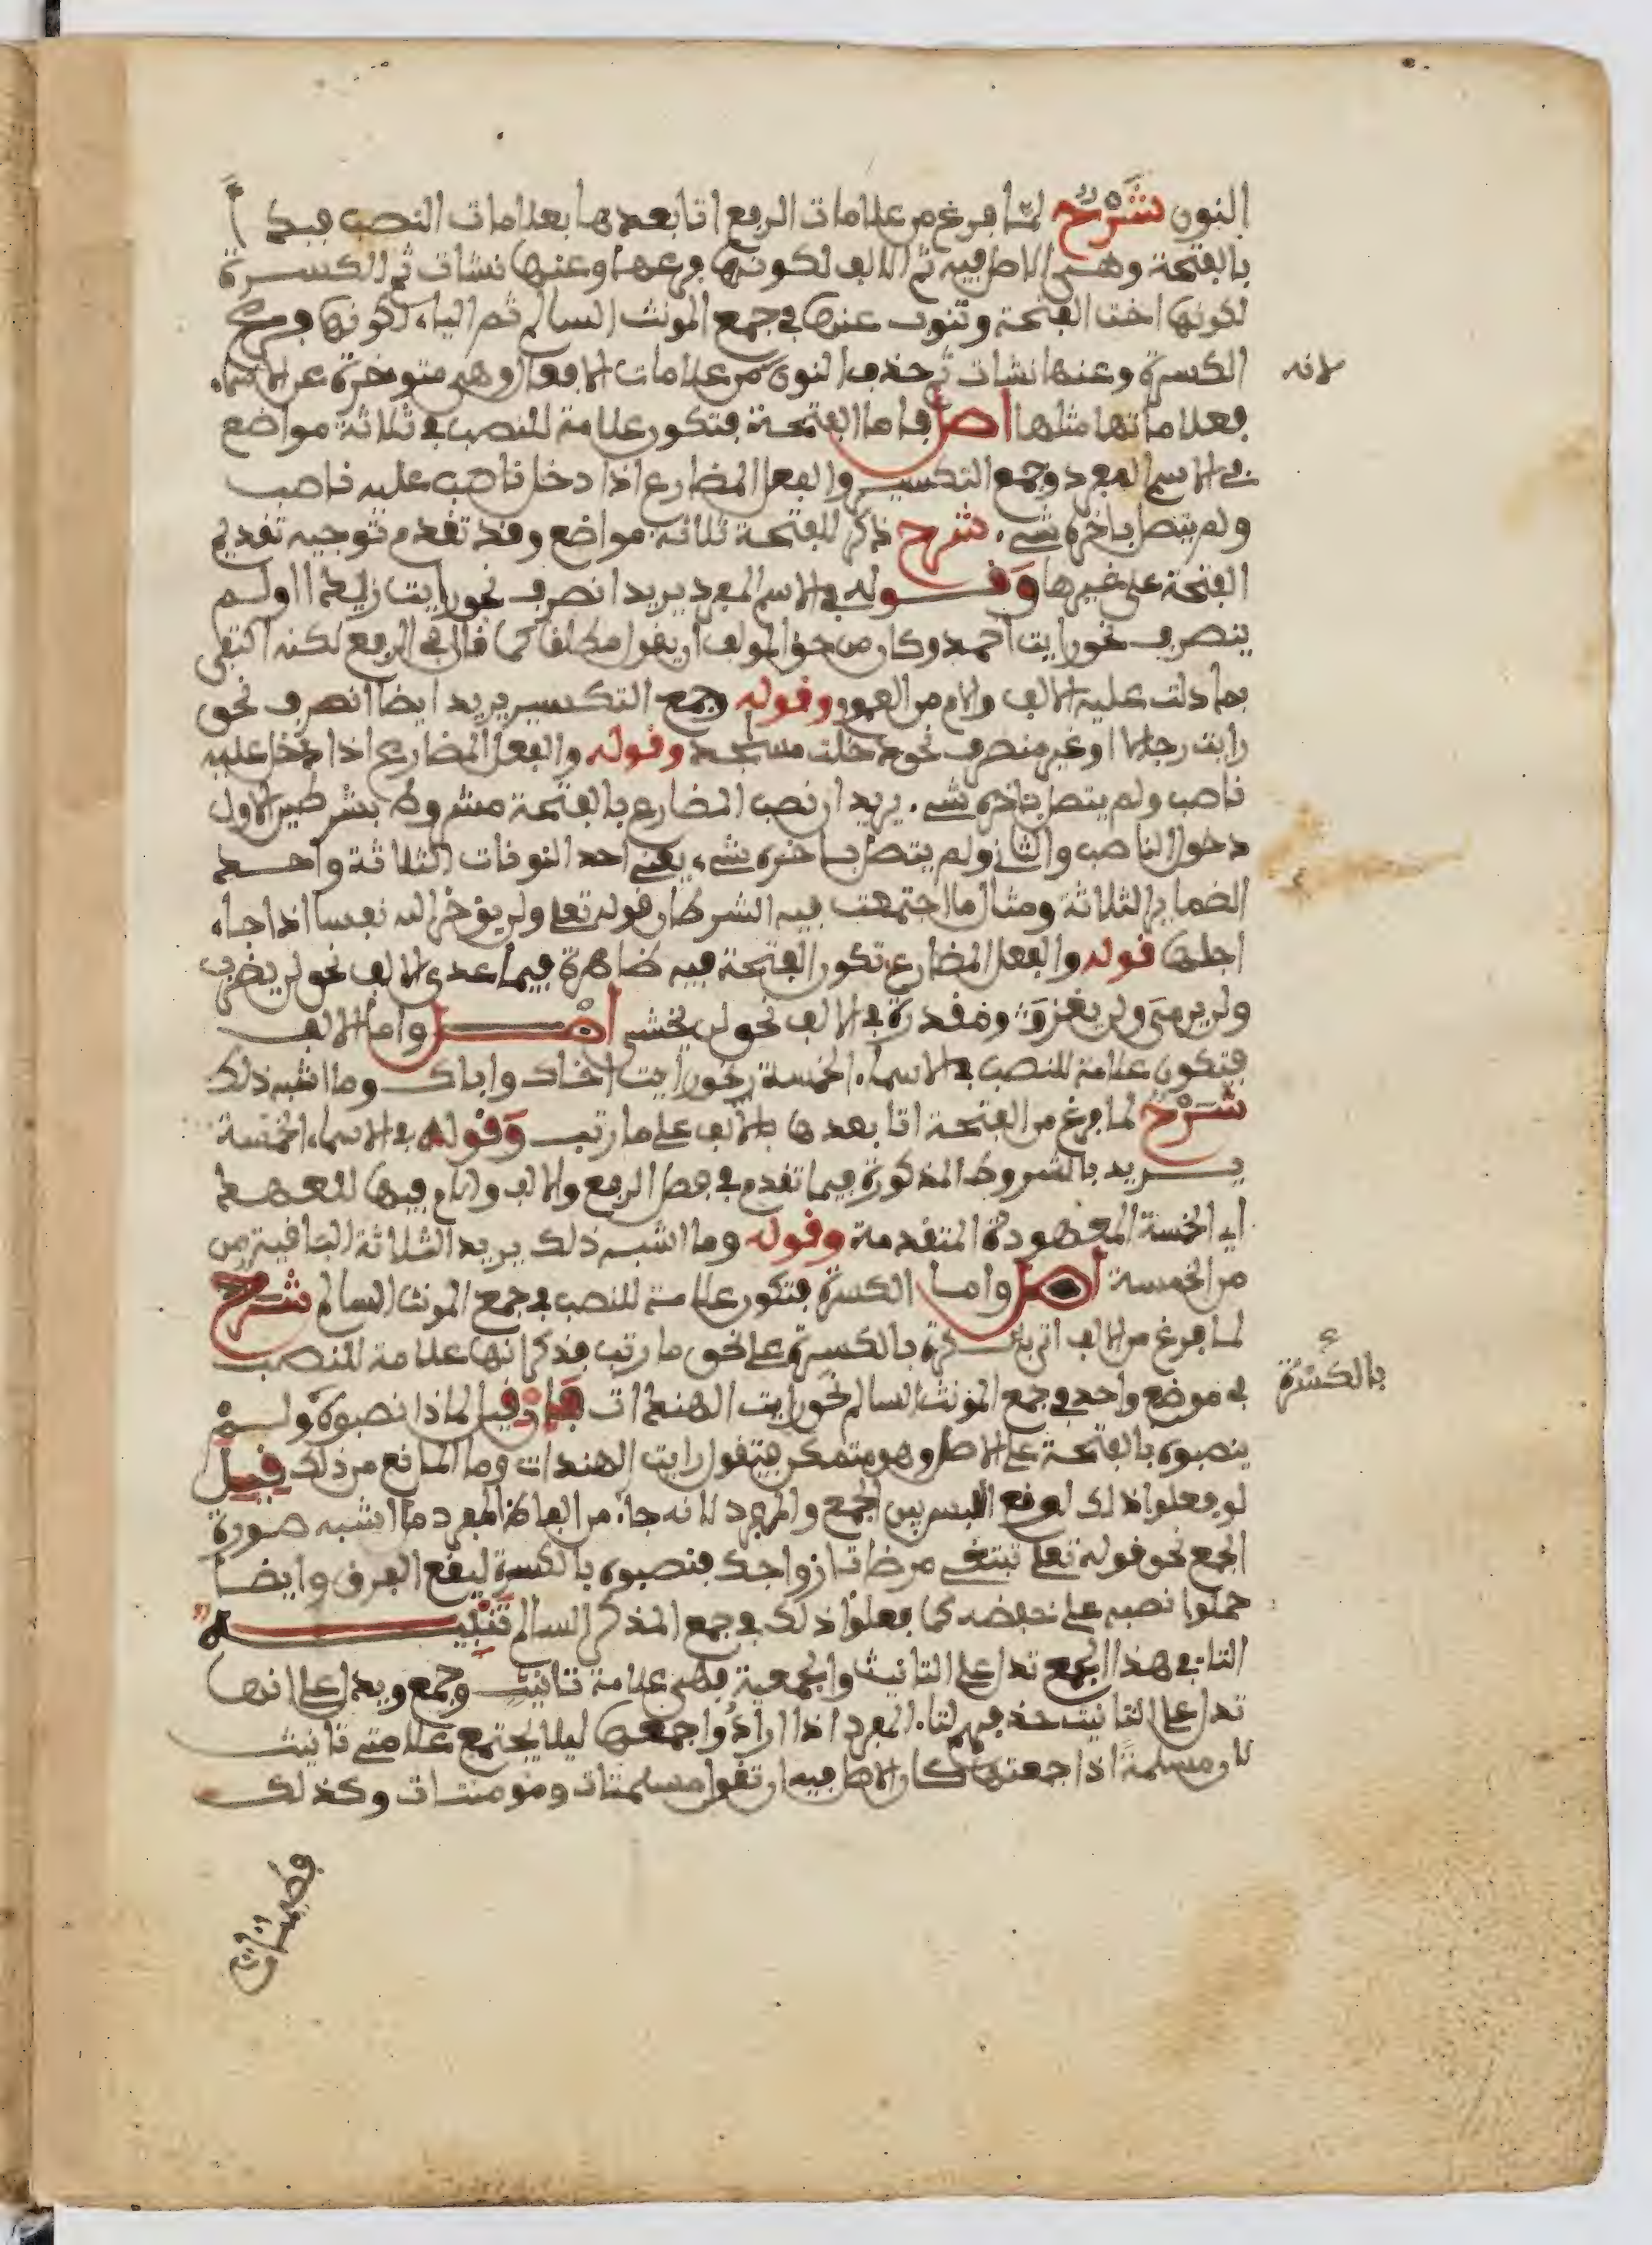 النون شَرْحٌ لمّا فرغ من علامات الرفع اتا بعدها بعلامات النصب فبدأ
بالفتحة وهي الاصل فيه ثم الالف لكونها فرعها وعنها نشات ثم الكسرة
لكونها اخت الفتحة وتنوب عنها في جمع المونث السالم ثم الياء لكونها فرع
الكسرة وعنها نشات ثم حذف النون من علامات الافعال وهي متوخرة عن الاسماء
لانه
فعلاماتها مثلها اصل فاما الفتحة فتكون علامة للنصب في ثلاثة مواضع
في الاسم المفرد وجمع التكسير والفعل المضارع اذا دخل ناصب عليه ناصب
ولم يتصل باخره شيء شرح ذكر للفتحة ثلاثة مواضع وقد تقدم توجيه تقديم
الفتحة على غيرها وَقوله في الاسم المفرد يريد انصرف نحو رايت زيدا اولم
ينصرف نحو رايت احمد وكان من حق المولف ان يقول مطلقا كما قال في الرفع لكنه اكتفى
بما دلت عليه الالف والام من العموم وقوله وجمع التكسير يريد ايضا انصرف نحو
رايت رجالا او غير منصرف نحو دخلت مساجد وقوله والفعل المضارع اذا دخل عليه
ناصب ولم يتصل باخره شيء يريد ان نصب المضارع بالفتحة مشروط بشرطين الاول
دخول الناصب والثاني ولم يتصل باخره شيء يعني احد النونات الثلاثة واحد
الضماير الثلاثة ومثال ما اجتمعت فيه الشرطان قوله تعلى ولن يؤخر الله نفسا اذا جاء
اجلها قوله والفعل المضارع تكون الفتحة فيه ظاهرة فيما عدى الالف نحو لن يضرب
ولن يرميَ ولن يغزوَ ومقدرة في الالف نحو لن يخشى اصل واما الالف
فتكون علامة للنصب في الاسماء الخمسة نحو رايت اخاك واباك وما اشبه ذلك
شَرْحٌ لما فرغ من الفتحة اتا بعدها بالالف على ما رتب وَقوله في الاسماء الخمسة
يريد بالشروط المذكورة فيما تقدم في فصل الرفع والالف والام فيها للعهد
اي الخمسة المعهودة المتقدمة وقوله وما اشبه ذلك يريد الثلاثة الباقية من
من الخمسة اصل واما الكسرة فتكون علامة للنصب في جمع المونث السالم شرح
لما فرغ من الالف اتى بالكسرة بالكسرة على نحو ما رتب فذكر انها علامة للنصب
بالكسْرَة
في موضع واحد في جمع المونث السالم نحو رايت الهندات فان قيل لماذا نصبوه ولم
ينصبوه بالفتحة على الاصل وهو متمكن فيتقول رايت الهندات وما المانع من ذلك قيل
لو فعلوا ذلك لوقع اللبس بين الجمع والمفرد لانه جاء من الفاظ المفرد ما اشبه صورة
الجمع نحو قوله تعلى تبتغي مرضات ازواجك فنصبوه بالكسرة ليقع الفرق وايضا
حملوا نصبه على خفضه كما فعلوا ذلك في جمع المذكر السالم تَنْبيه
التاء في هذا الجمع تدل على التانيث والجمعية فهي علامة تانيث وجمع ويدل على انها
تدل على التانيث حذفهم لتاء المفرد اذا ارادوا جمعها ليلا يجتمع علامتي تانيث
لان مسلمة اذا جمعتها كان الاصل فيه ان تقول مسلمتات ومومنتات وكذلك